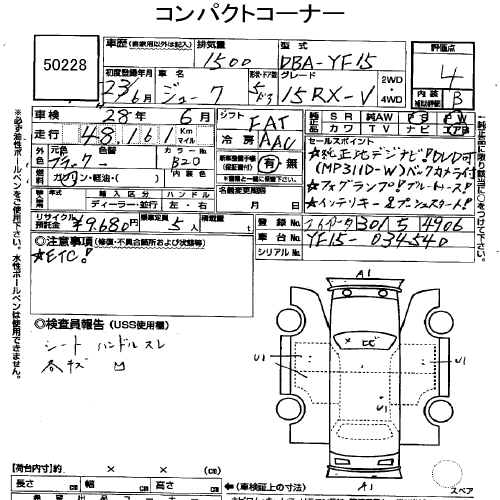 コンパクトコーナー
50228
車歴 (自家用以外は記入)
排気量
1500
型式
DBA-YF15
評価点
4
初度登録年月
23/6月
車名
ジューク
形状・ドア数
5ドア
グレード
15RX-V
2WD
4WD
内装
補助評価
B
車検
28年 6月
シフト
FAT
純正品
SR 純AW PS PW
カワ TV ナビ エアB
走行
48,161
Km
マイル
冷房
AAC
セールスポイント
★純正比デジナビ!DVD可
(MP311D-W)バックカメラ付
★フォグランプ!ブルートゥース!
★インテリキー&プッシュスタート!
外色
元色
ブラック
色替
カラーNo.
B20
内装色
新車整備手帳
(保証書付)
有・無
燃料
ガソリン・軽油・( )
輸入区分
ハンドル
ディーラー・並行
左・右
名義変更期限
月 日
リサイクル
預託金
¥9,680
乗車定員
5人
積載量
t
登録No
301 5 4906
車台No
YF15-034540
シリアルNo
◎注意事項 (修復・不具合箇所および状態等)
★ETC!
◎検査員報告 (USS使用欄)
シート ハンドルスレ
A1
U1
U1
U1
A1
スペア
【荷台内寸】約 × × (cm)
長さ cm 幅 cm 高さ cm
←(車検証上の寸法)
※必ず油性ボールペンをご使用下さい。水性ボールペンは消去できません。